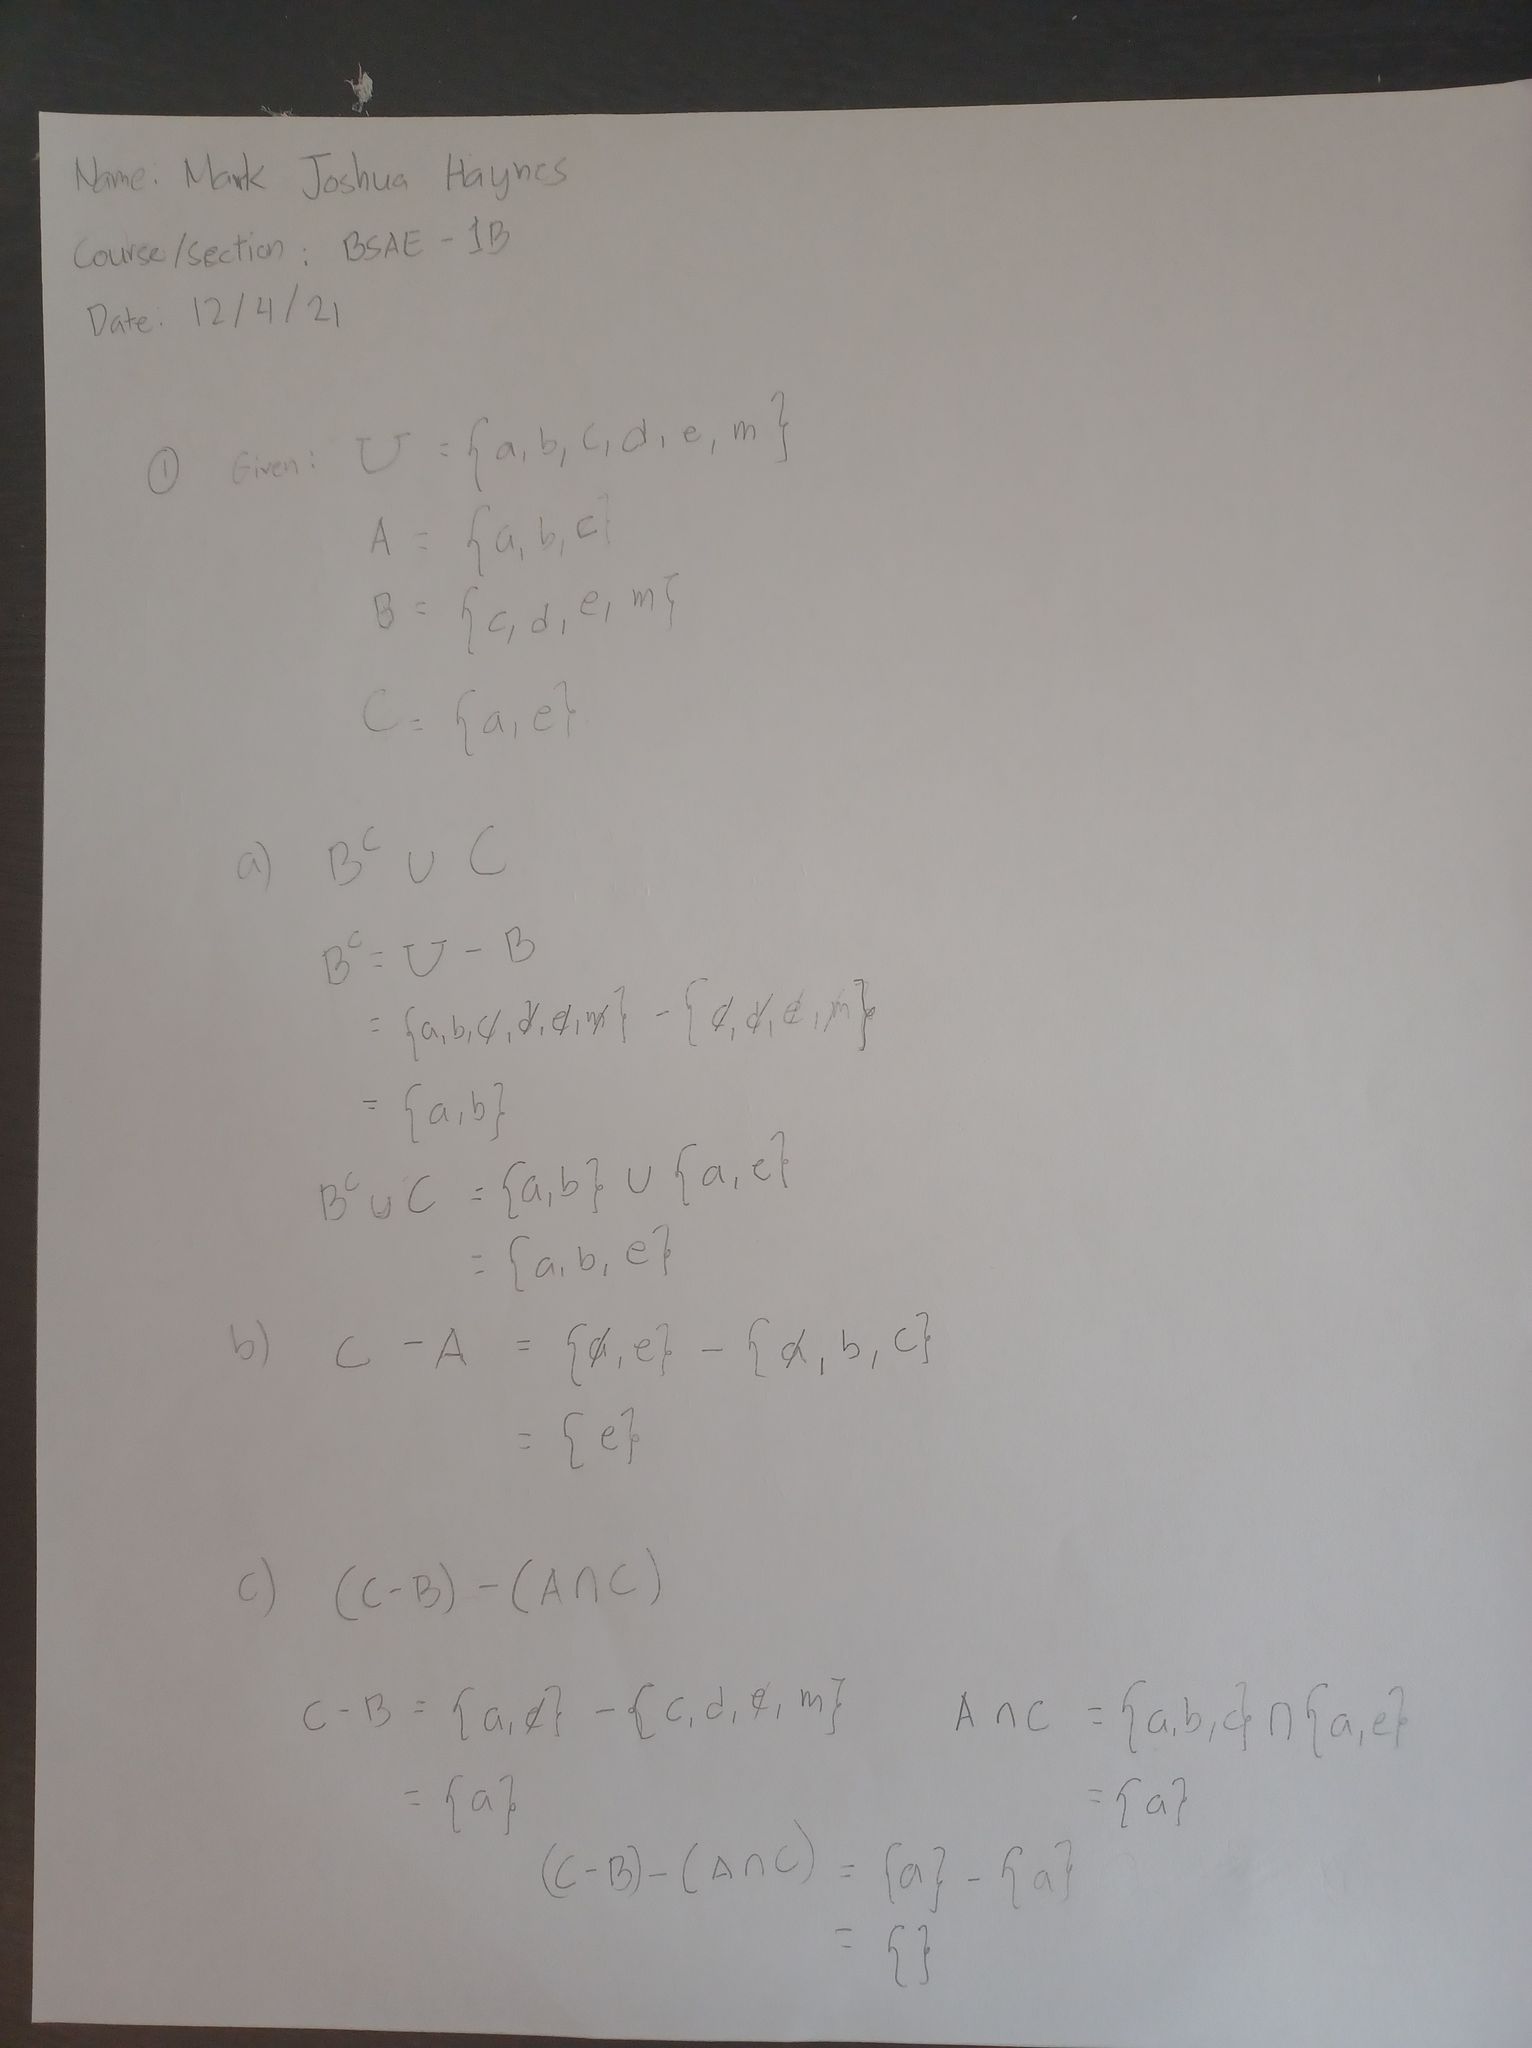 Name: Mark Joshua Haynes
Course/section: BSAE - 1B
Date: 12/4/21
① Given: U = {a, b, c, d, e, m}
A = {a, b, c}
B = {c, d, e, m}
C = {a, e}
a) Bᶜ ∪ C
Bᶜ = U - B
= {a, b, c, d, e, m} - {c, d, e, m}
= {a, b}
Bᶜ ∪ C = {a, b} ∪ {a, e}
= {a, b, e}
b) C - A = {a, e} - {a, b, c}
= {e}
c) (C-B) - (A∩C)
C - B = {a, e} - {c, d, e, m} A ∩ C = {a, b, c} ∩ {a, e}
= {a} = {a}
(C-B) - (A∩C) = {a} - {a}
= {}